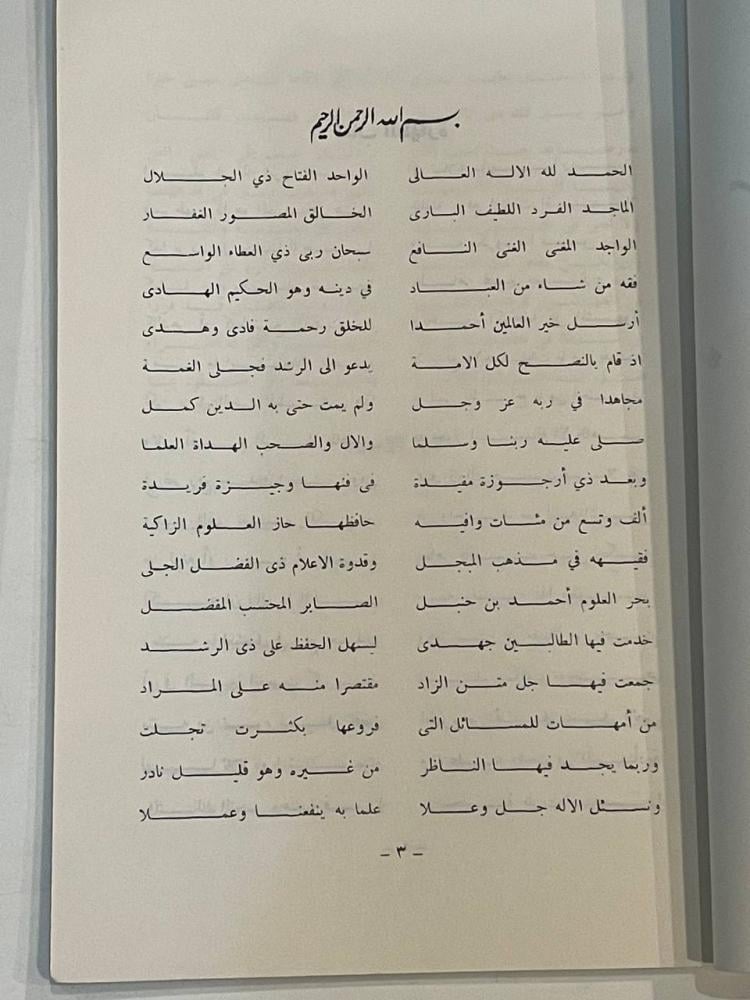 بسم الله الرحمن الرحيم
الحمد لله الاله العالى الواحد الفتاح ذي الجلال
الماجد الفرد اللطيف البارى الخالق المصور الغفار
الواجد المغنى الغنى النافع سبحان ربى ذي العطاء الواسع
فقه من شاء من العباد في دينه وهو الحكيم الهادى
أرسل خير العالمين أحمدا للخلق رحمة فادى وهدى
اذ قام بالنصح لكل الامة يدعو الى الرشد فجلى الغمة
مجاهدا في ربه عز وجل ولم يمت حتى به الدين كمل
صلى عليه ربنا وسلما والال والصحب الهداة العلما
وبعد ذي أرجوزة مفيدة فى فنها وجيزة فريدة
ألف وتسع من مئات وافيه حافظها حاز العلوم الزاكية
فقيهه في مذهب المبجل وقدوة الاعلام ذى الفضل الجلى
بحر العلوم أحمد بن حنبل الصابر المحتسب المفضل
خدمت فيها الطالبين جهدى ليسهل الحفظ على ذى الرشد
جمعت فيها جل متن الزاد مقتصرا منه على المراد
من أمهات للمسائل التى فروعها بكثرت تجلت
وربما يجد فيها الناظر من غيره وهو قليل نادر
ونسئل الاله جل وعلا علما به ينفعنا وعملا
– ٣ –